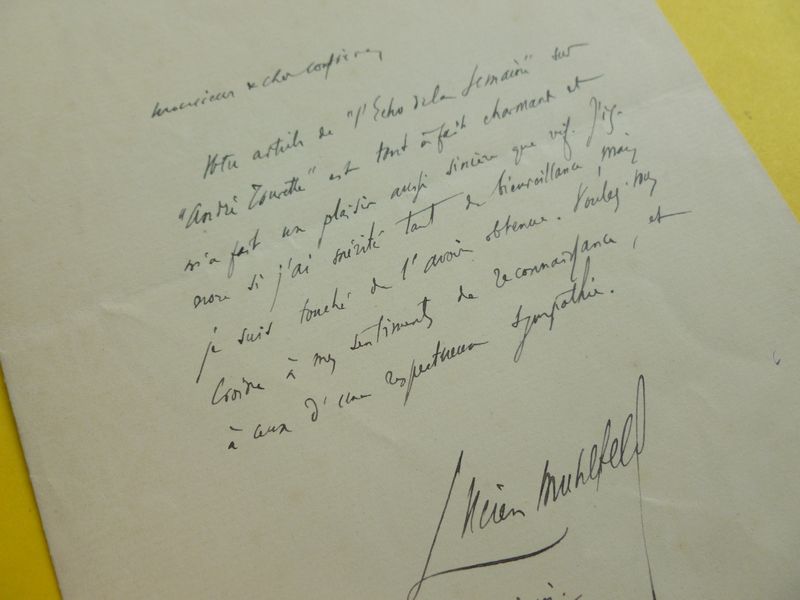 Monsieur & cher confrère,
Votre article de "l'Echo de la Semaine" sur
"André Tourette" est tout à fait charmant et
m'a fait un plaisir aussi sincère que vif. J'ig-
nore si j'ai mérité tant de bienveillance, mais
je suis touché de l'avoir obtenue. Voulez-vous
croire à mes sentiments de reconnaissance, et
à ceux d'une respectueuse sympathie.
Lucien Muhlfeld